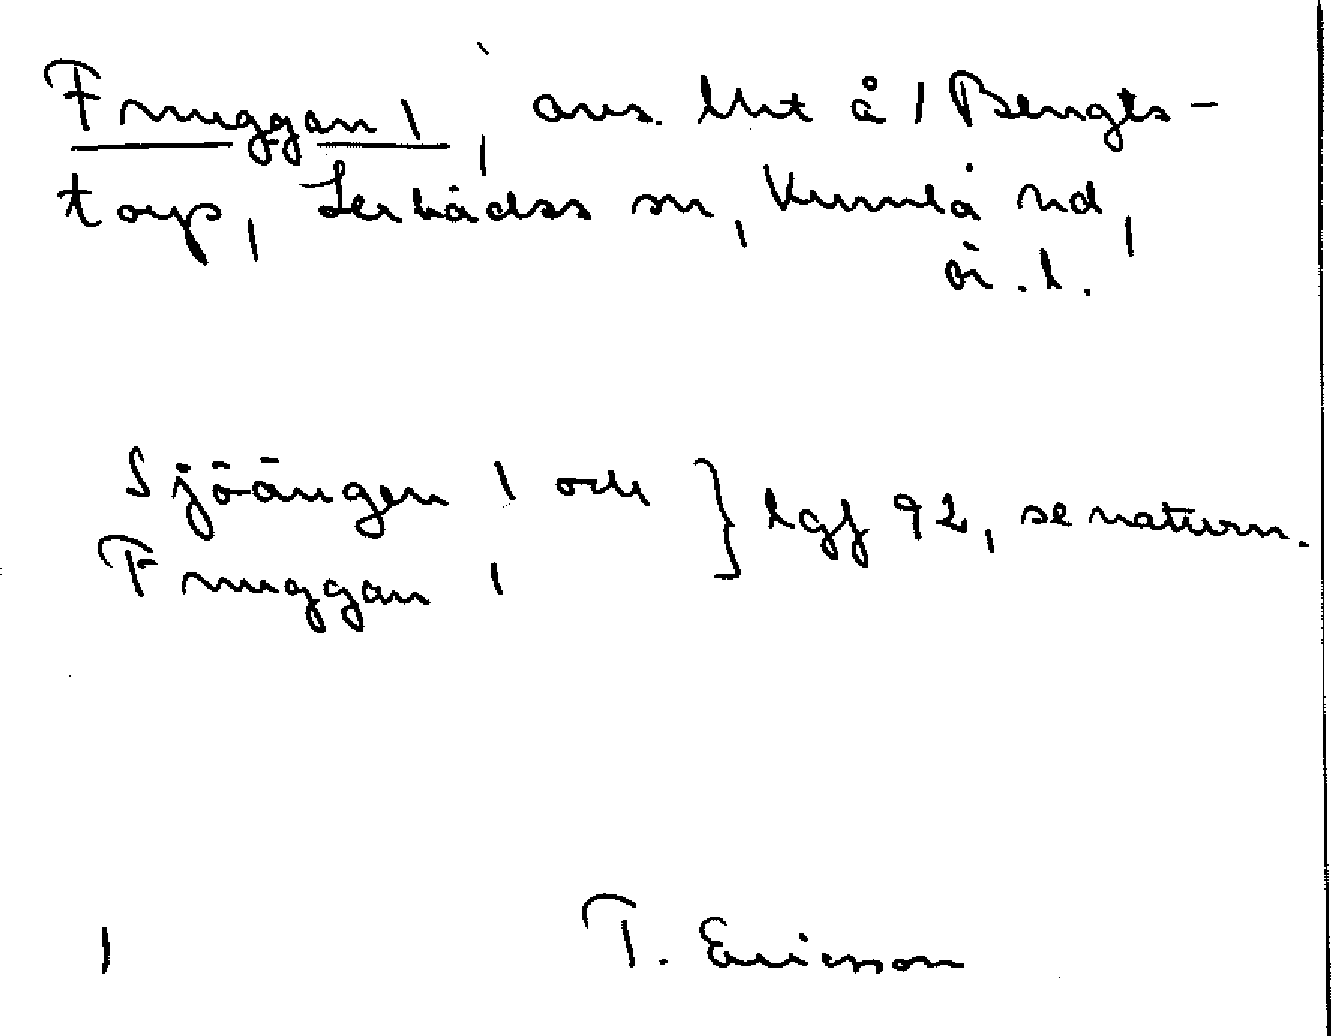 Fnuggan 1, avs. lht å 1 Bengts-
torp, Lerbäcks sn, Kumla hd,
ör. l.
Sjöängen 1 och
Fnuggan 1 } lgf 92, se naturn.
1 T. Ericsson